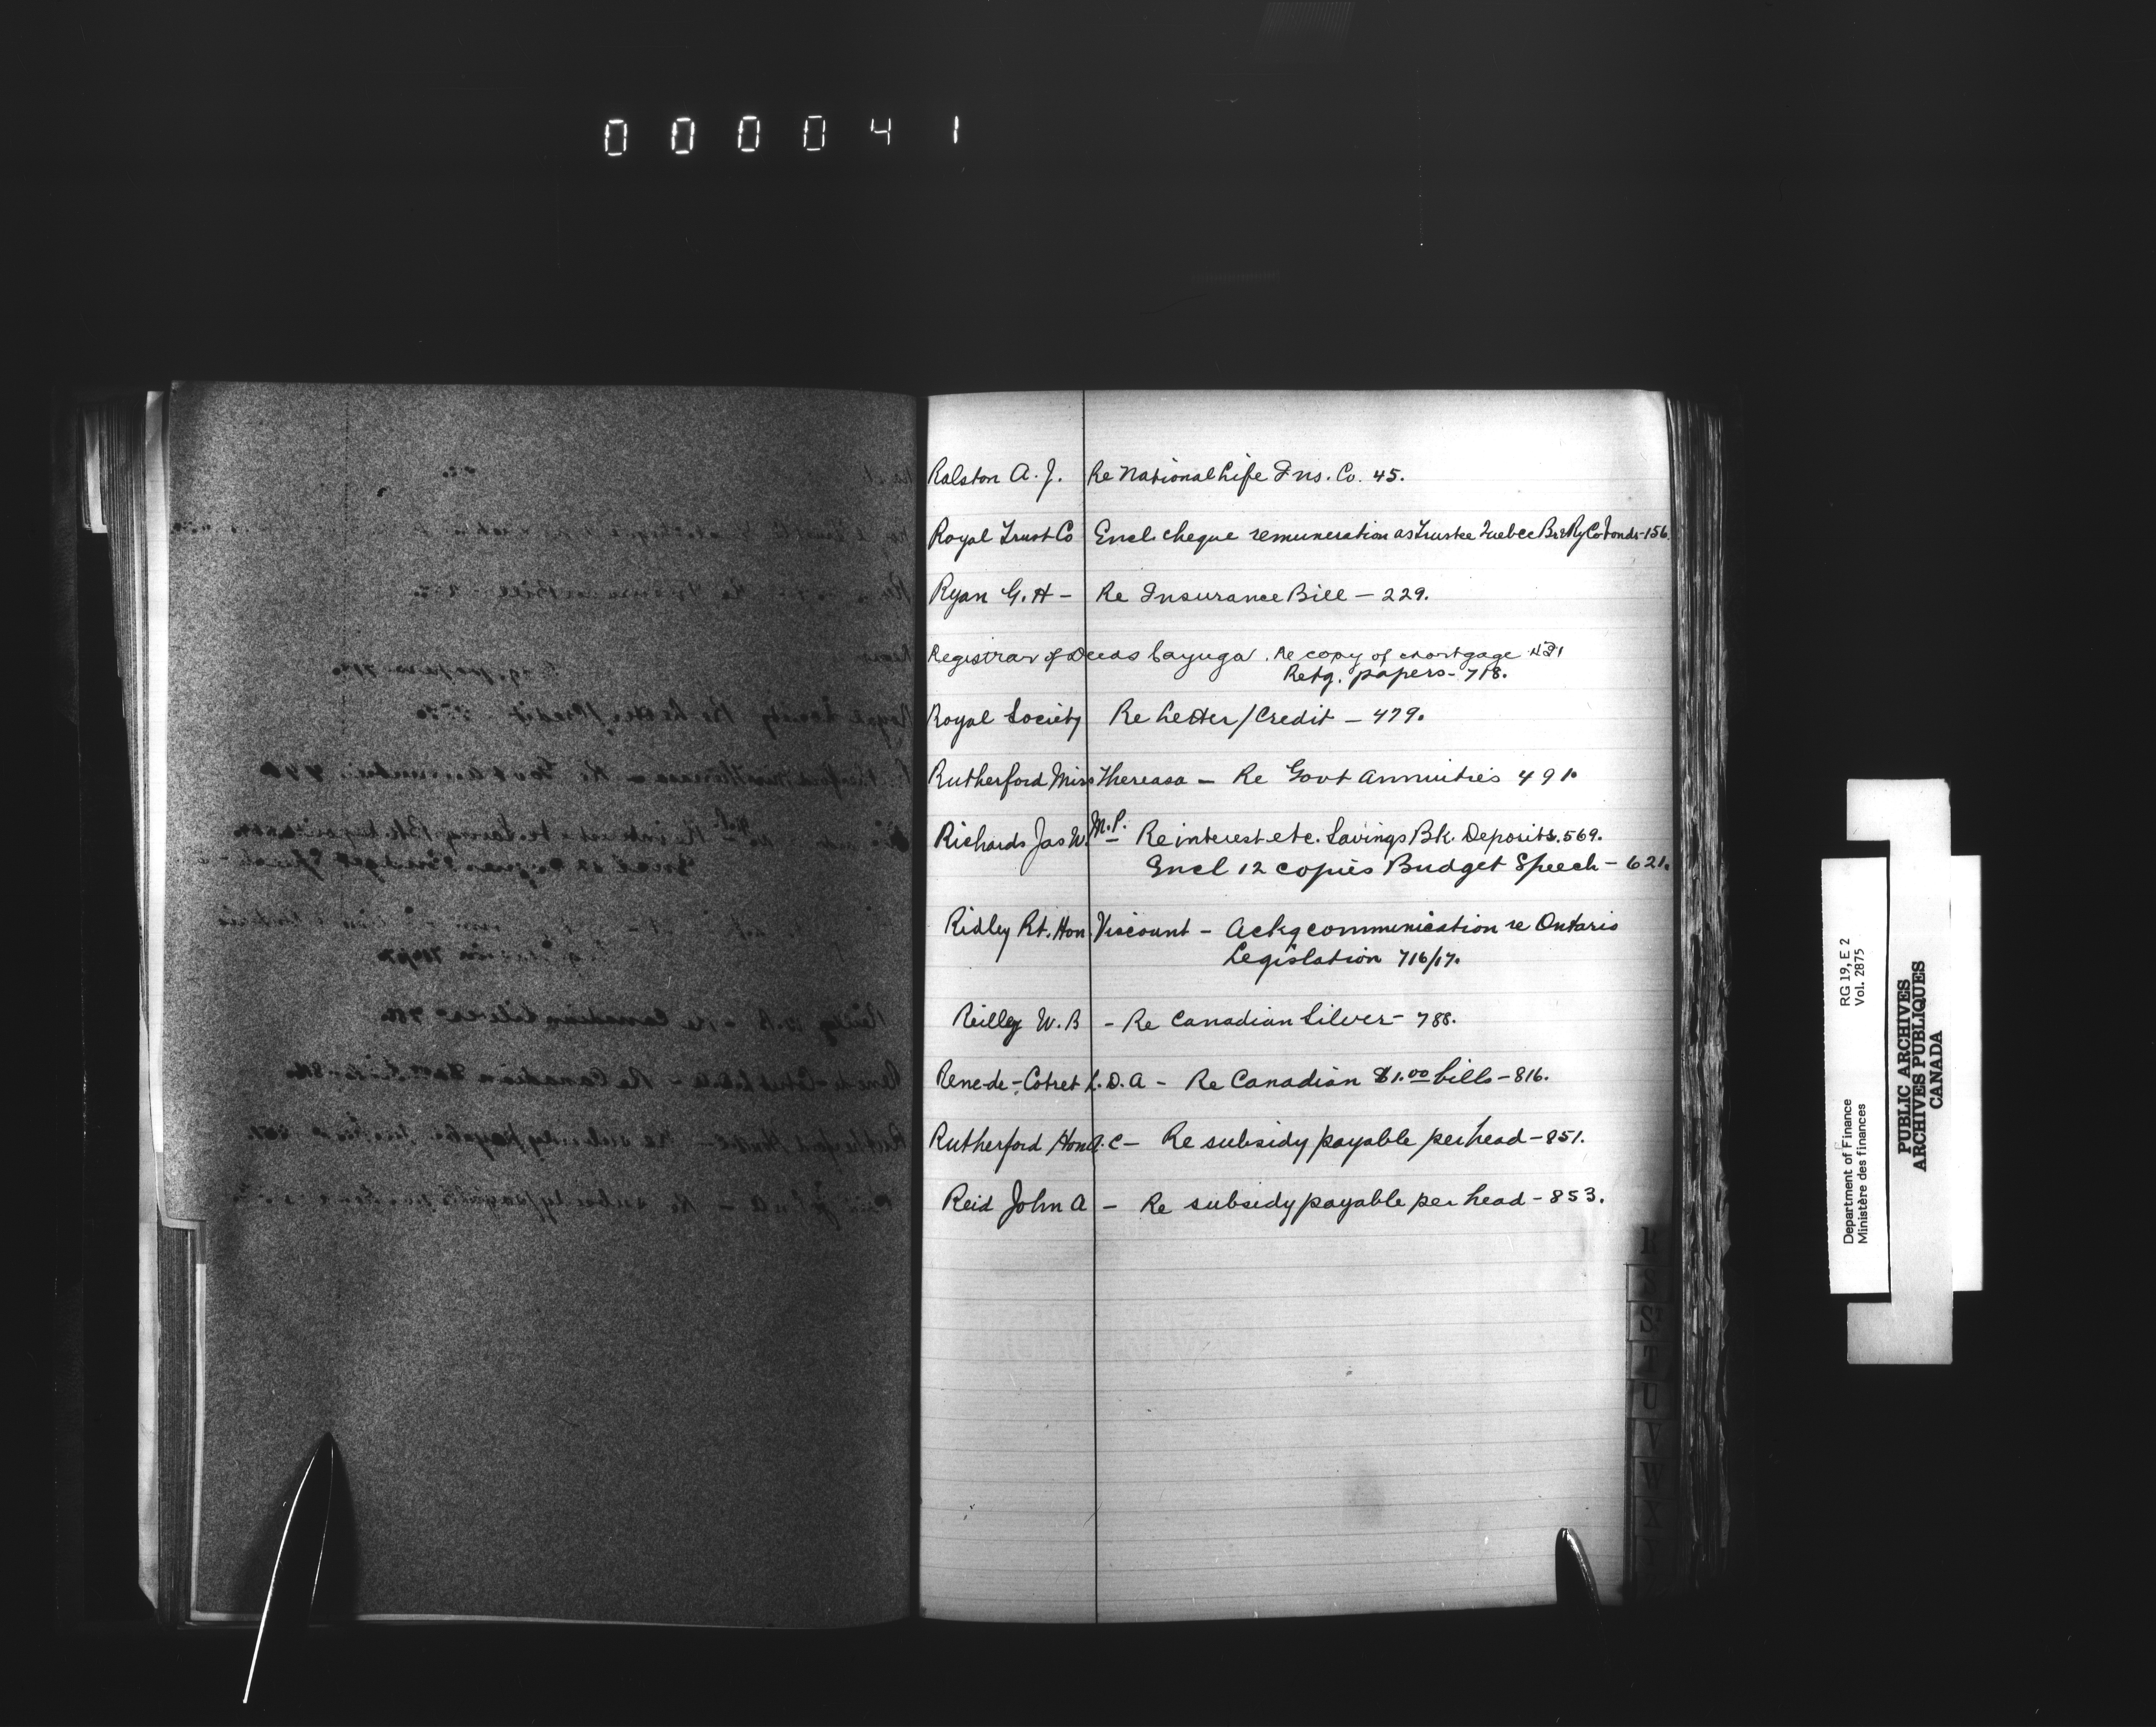 000041
Ralston A. J. Re National Life Ins. Co. 45.
Royal Trust Co Encl. cheque remuneration as Trustee Quebec Br & Ry Co bonds - 156.
Ryan G. H - Re Insurance Bill - 229.
Registrar of Deeds Cayuga. Re copy of mortgage
Retg. papers - 718.
Royal Society Re Letter/Credit - 479.
Rutherford Miss Thereasa - Re Govt Annuities 491.
Richards Jas W. M.P. - Re interest etc. Savings Bk. Deposits. 569.
Encl 12 copies Budget Speech - 621.
Ridley Rt. Hon. Viscount - Ackg communication re Ontario
Legislation 716/17.
Reilly W. B - Re Canadian Silver - 788.
Rene-de-Cotret L. D. A - Re Canadian $1.00 bills - 816.
Rutherford Hon A. C - Re subsidy payable per head - 851.
Reid John A - Re subsidy payable per head - 853.
R
S
T
U
V
W
X
Department of Finance
Ministère des finances
RG 19, E 2
Vol. 2875
PUBLIC ARCHIVES
ARCHIVES PUBLIQUES
CANADA